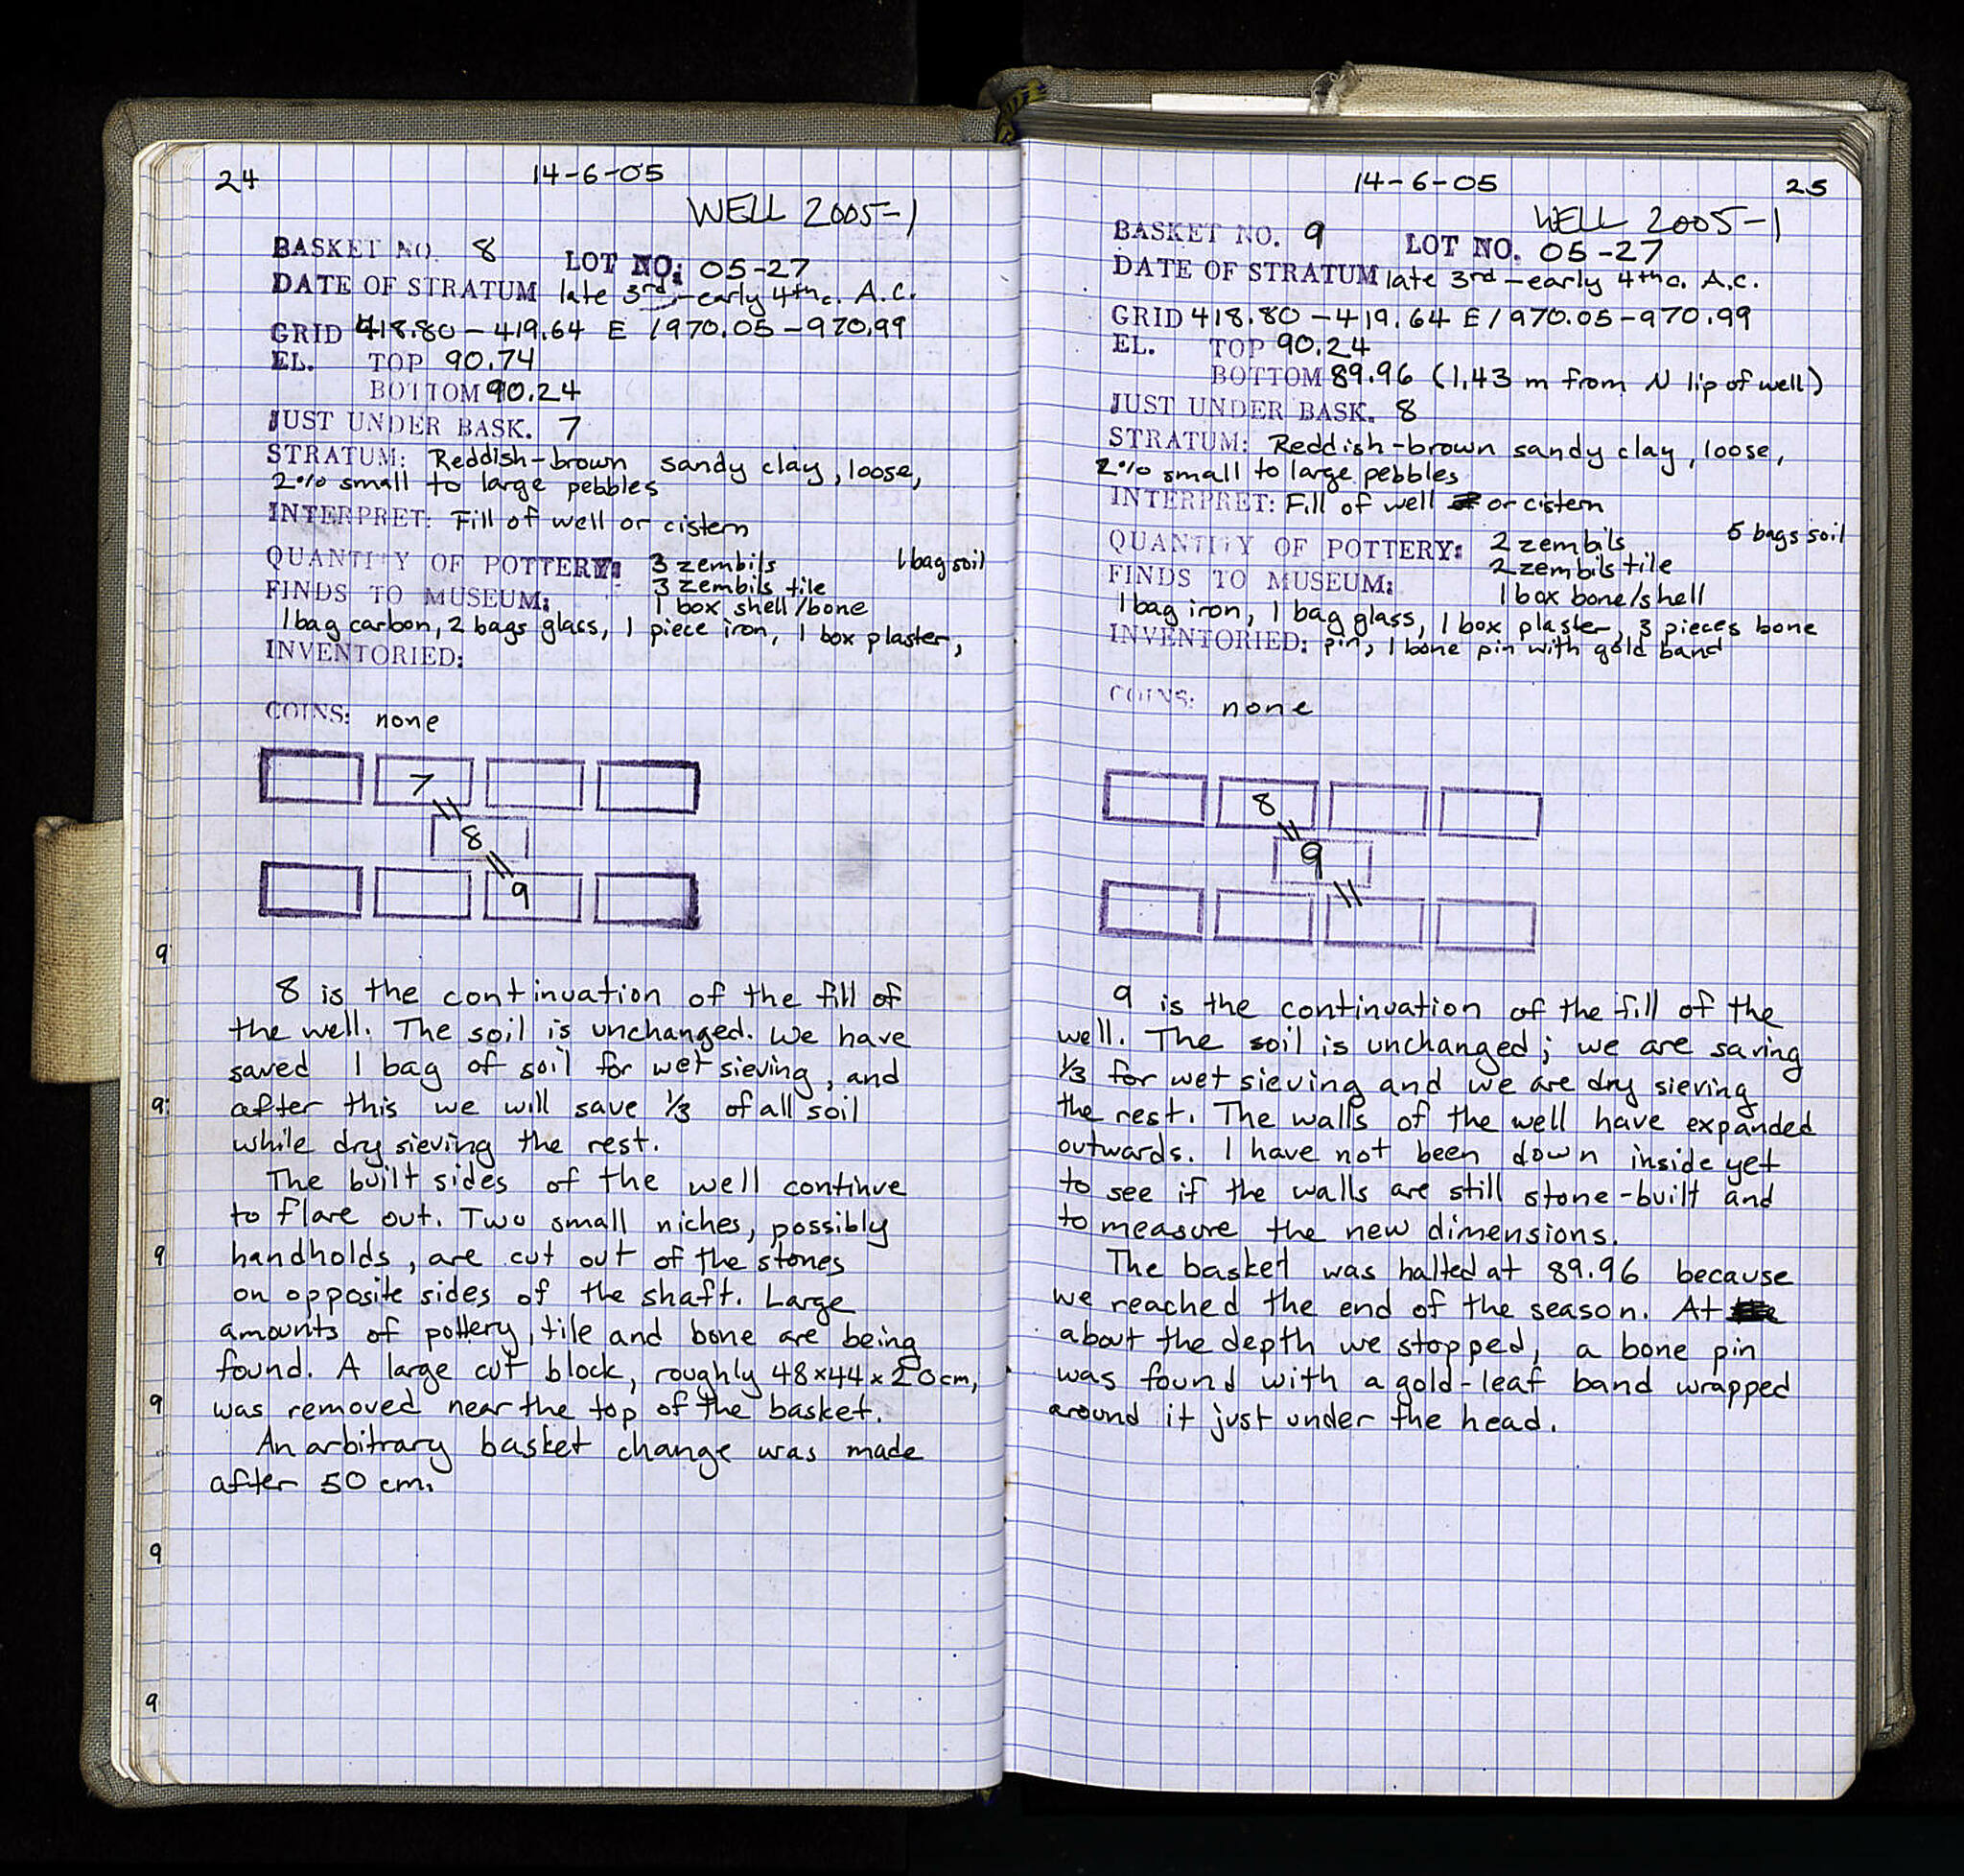 24
14-6-05
WELL 2005-1
BASKET NO. 8 LOT NO: 05-27
DATE OF STRATUM late 3rd-early 4th c. A.C.
GRID 418.80-419.64 E / 970.05-970.99
EL. TOP 90.74
BOTTOM 90.24
JUST UNDER BASK. 7
STRATUM: Reddish-brown sandy clay, loose,
2% small to large pebbles
INTERPRET: Fill of well or cistern
QUANTITY OF POTTERY: 3 zembils 1 bag soil
3 zembils tile
FINDS TO MUSEUM: 1 box shell/bone
1 bag carbon, 2 bags glass, 1 piece iron, 1 box plaster,
INVENTORIED:
COINS: none
7
8
9
8 is the continuation of the fill of
the well. The soil is unchanged. We have
saved 1 bag of soil for wet sieving, and
after this we will save 1/3 of all soil
while dry sieving the rest.
The built sides of the well continue
to flare out. Two small niches, possibly
handholds, are cut out of the stones
on opposite sides of the shaft. Large
amounts of pottery, tile and bone are being
found. A large cut block, roughly 48x44x20cm,
was removed near the top of the basket.
An arbitrary basket change was made
after 50 cm.
9
9
9
9
9
9
14-6-05
25
WELL 2005-1
BASKET NO. 9 LOT NO. 05-27
DATE OF STRATUM late 3rd-early 4th c. A.C.
GRID 418.80-419.64 E / 970.05-970.99
EL. TOP 90.24
BOTTOM 89.96 (1.43 m from N lip of well)
JUST UNDER BASK. 8
STRATUM: Reddish-brown sandy clay, loose,
2% small to large pebbles
INTERPRET: Fill of well or cistern
QUANTITY OF POTTERY: 2 zembils 5 bags soil
2 zembils tile
FINDS TO MUSEUM: 1 box bone/shell
1 bag iron, 1 bag glass, 1 box plaster, 3 pieces bone
INVENTORIED: pin, 1 bone pin with gold band
COINS: none
8
9
9 is the continuation of the fill of the
well. The soil is unchanged; we are saving
1/3 for wet sieving and we are dry sieving
the rest. The walls of the well have expanded
outwards. I have not been down inside yet
to see if the walls are still stone-built and
to measure the new dimensions.
The basket was halted at 89.96 because
we reached the end of the season. At
about the depth we stopped, a bone pin
was found with a gold-leaf band wrapped
around it just under the head.